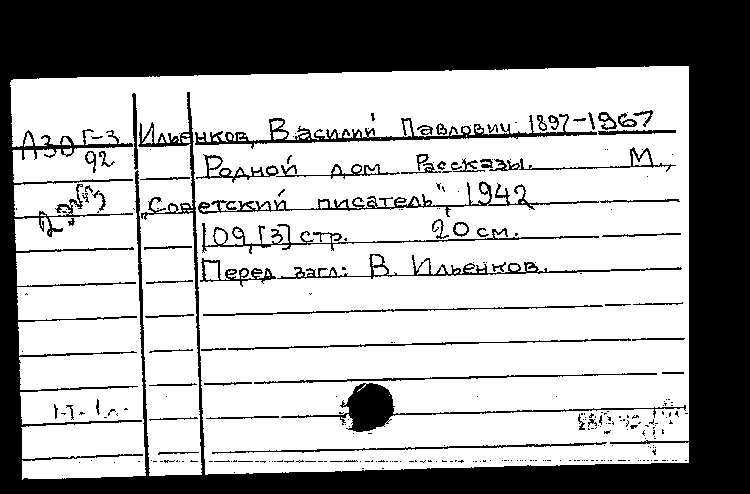 А30 Г-3
92
Ильенков, Василий Павлович. 1897-1967
Родной дом. Рассказы. М.,
„Советский писатель", 1942
109, [3] стр. 20 см.
Перед загл: В. Ильенков.